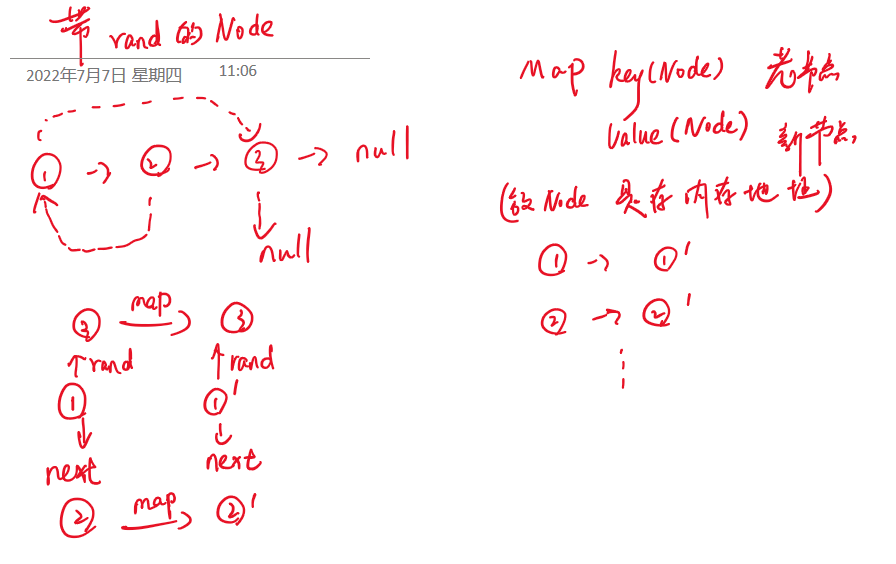 带 rand 的 Node
2022年7月7日 星期四 11:06
1 → 2 → 3 → null
null
3 map 3
rand rand
1 1'
next next
2 map 2'
Map key(Node) 老节点
Value(Node) 新节点,
(放Node 是存内存地址)
1 → 1'
2 → 2'